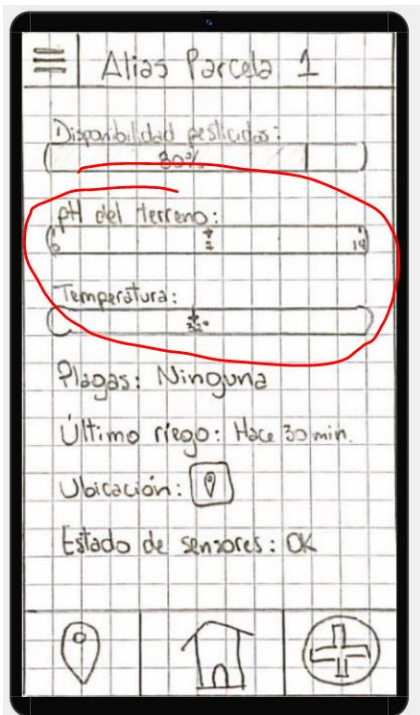 Alias Parcela 1
Disponibilidad pesticidas:
80%
pH del terreno:
0 7 14
Temperatura:
32°
Plagas: Ninguna
Último riego: Hace 30 min.
Ubicación:
Estado de sensores: OK